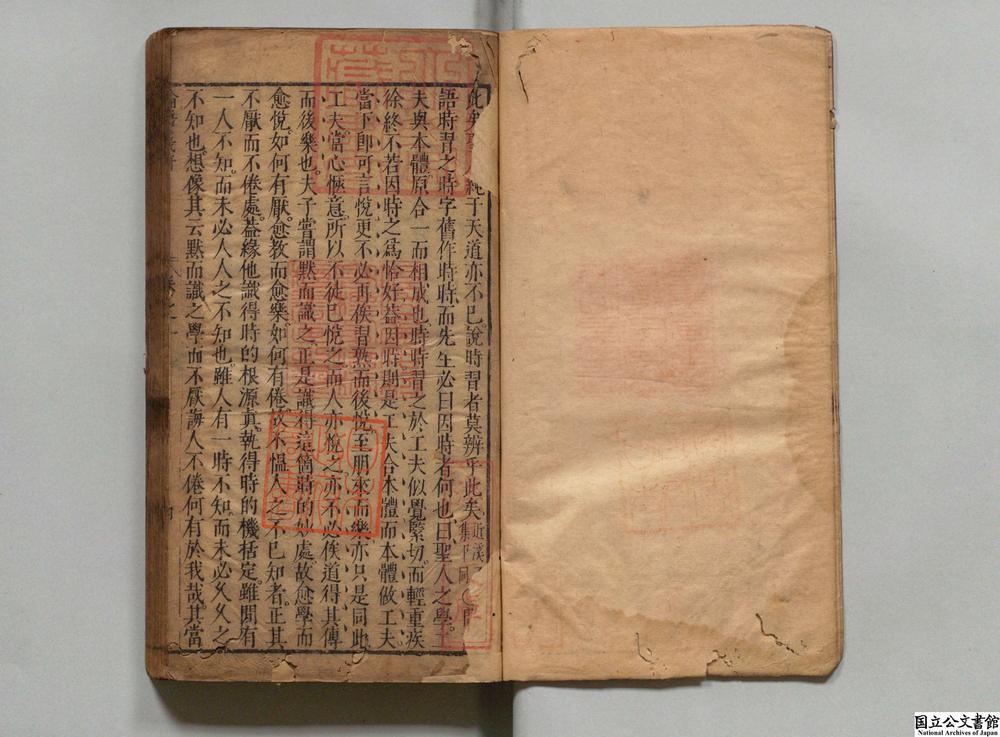 此矣純于天道亦不已說時習者莫辨乎此矣近溪集下同
語時習之時字舊作時時而先生必曰因時者何也曰聖人之學工
夫與本體原合一而相成也時時習之於工夫似覺緊切而輕重疾
徐終不若因時之爲恰好蓋因時則是工夫合本體而本體做工夫
當下即可言悅更不必再俟習熟而後悅至朋來而樂亦只是同此
工夫當心愜意所以不徒已悅之而人亦悅之亦不必俟道得其傳
而後樂也夫子嘗謂默而識之正是識得這箇時的妙處故愈學而
愈悅如何有厭愈教而愈樂如何有倦故不慍人之不已知者正其
不厭而不倦處蓋緣他識得時的根源真執得時的機括定雖間有
一人不知而未必人人之不知也雖人有一時不知而未必久久之
不知也想像其云默而識之學而不厭誨人不倦何有於我哉其當
卷之一
国立公文書館
National Archives of Japan